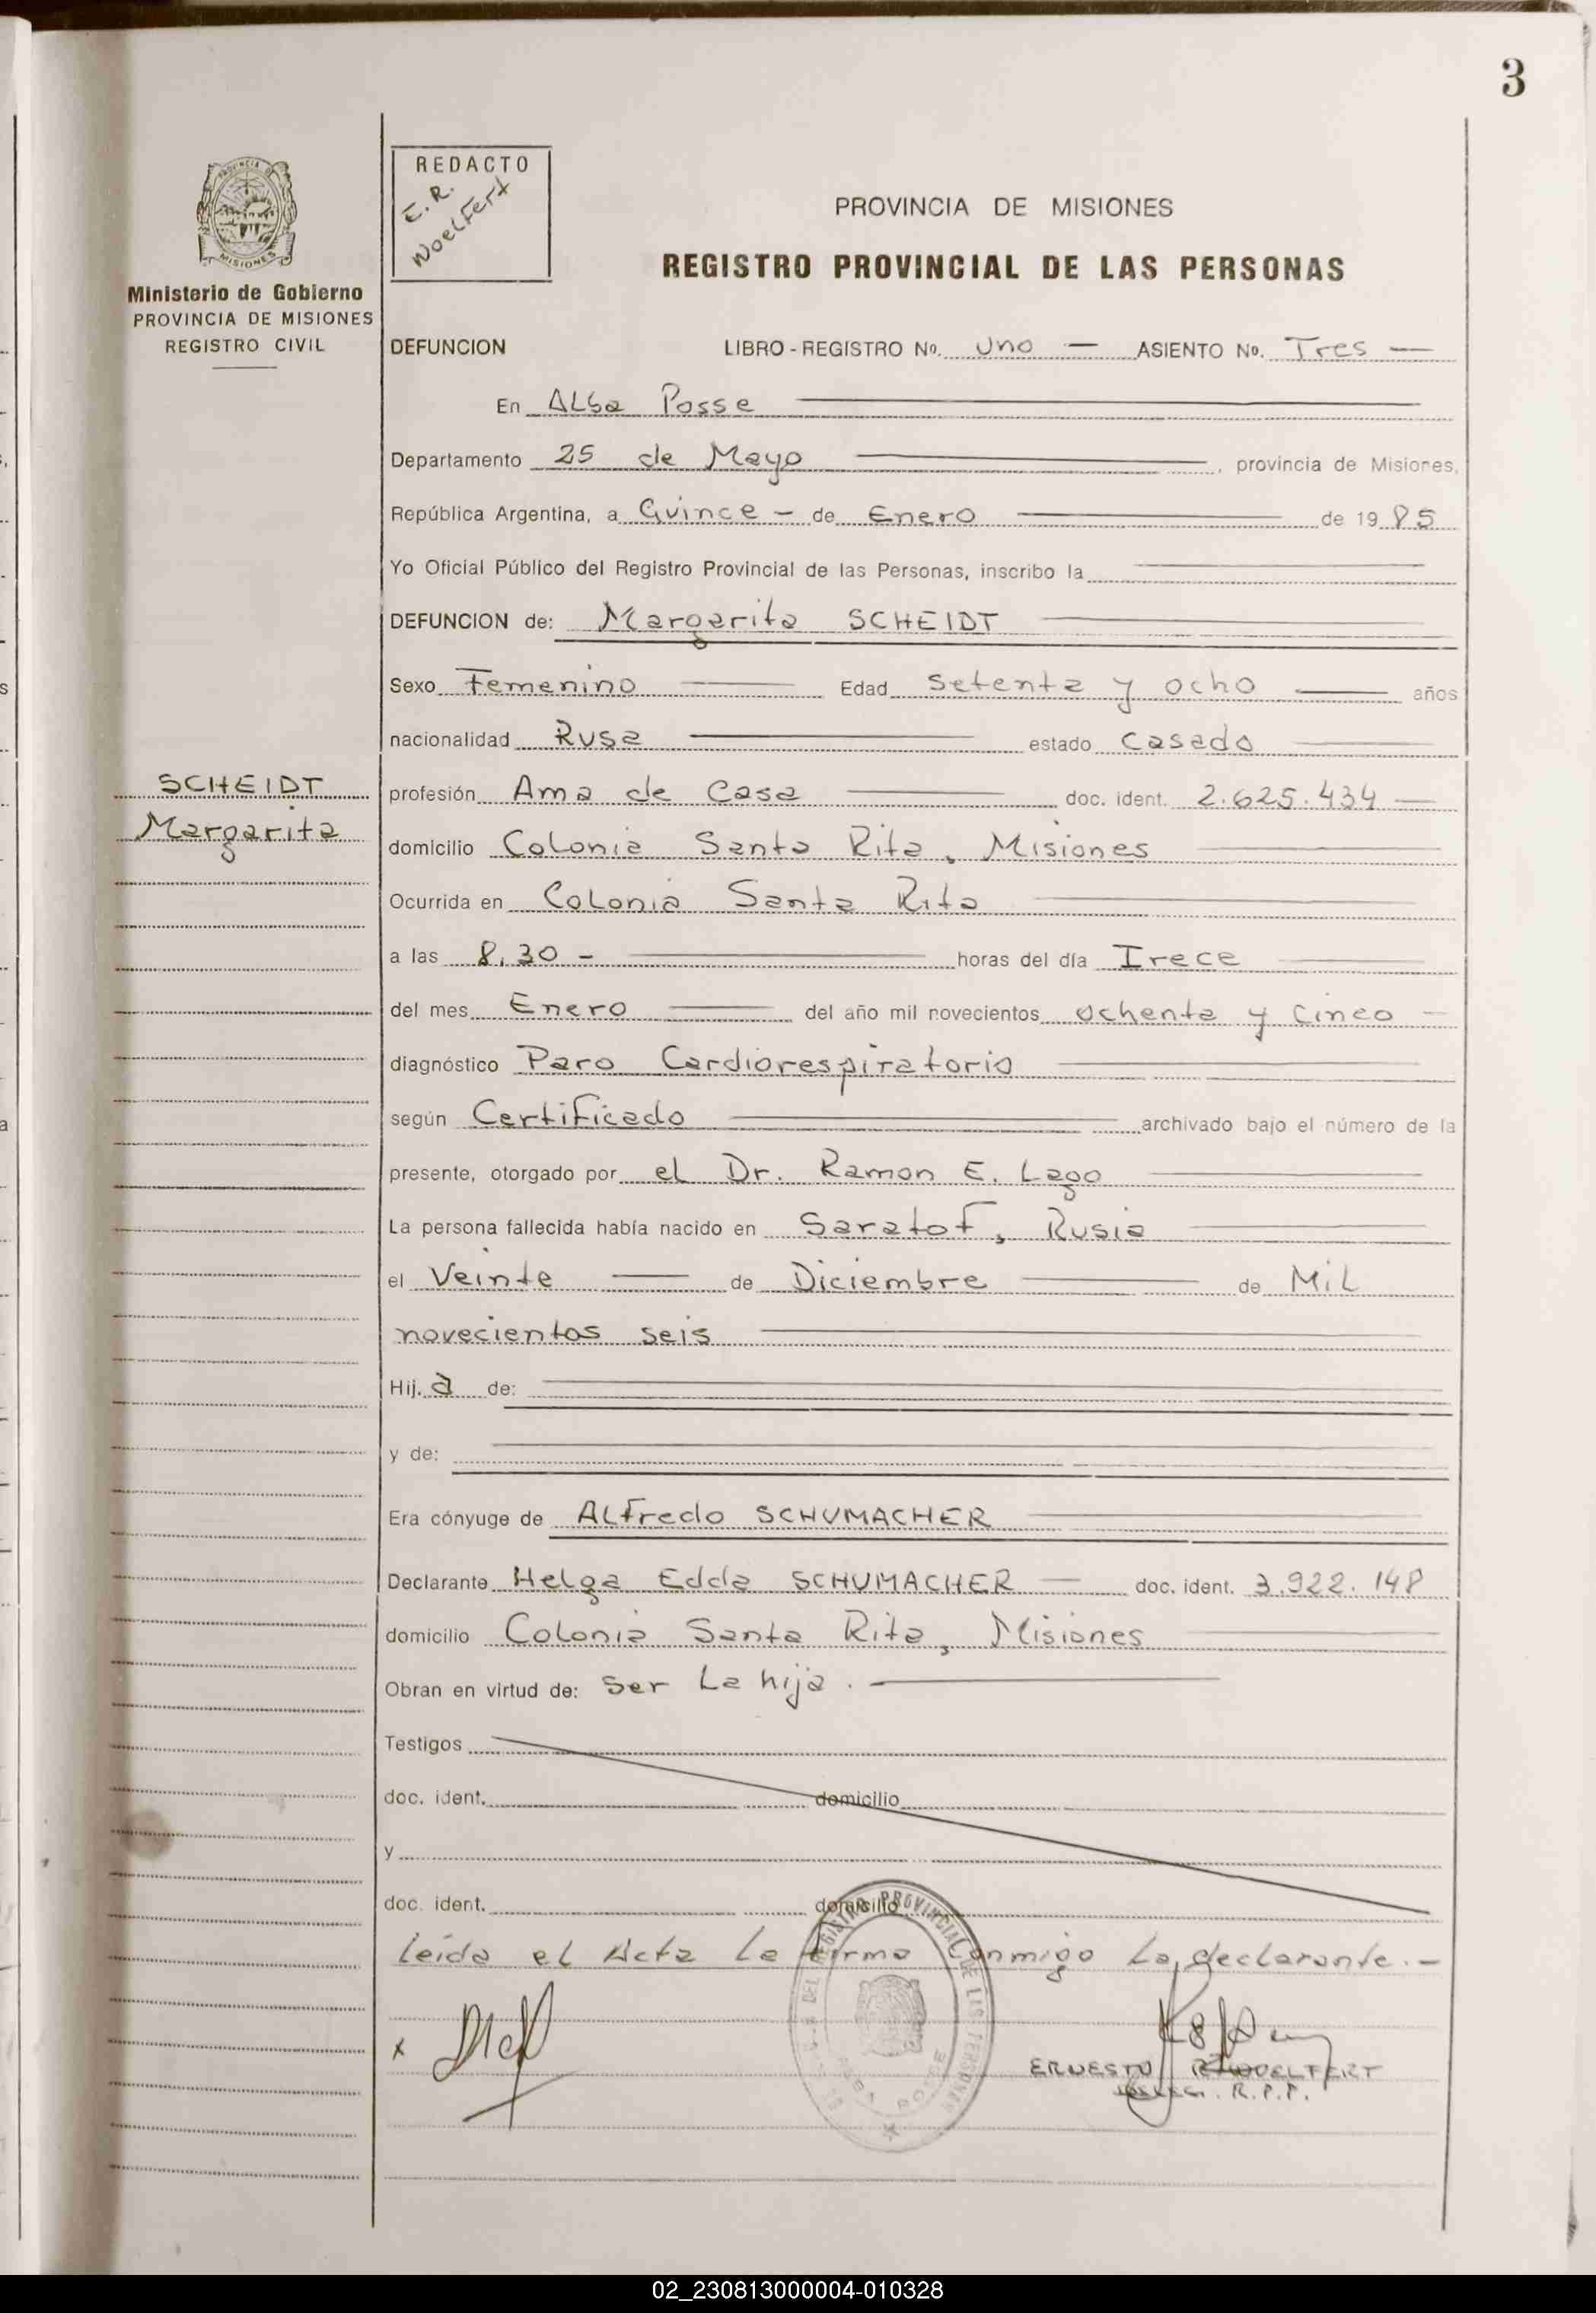 3
PROVINCIA DE
MISIONES
Ministerio de Gobierno
PROVINCIA DE MISIONES
REGISTRO CIVIL
REDACTO
E. R.
Woelfert
PROVINCIA DE MISIONES
REGISTRO PROVINCIAL DE LAS PERSONAS
DEFUNCION LIBRO - REGISTRO No. Uno — ASIENTO No. Tres —
En Alba Posse
Departamento 25 de Mayo , provincia de Misiones,
República Argentina, a Quince - de Enero de 1985
Yo Oficial Público del Registro Provincial de las Personas, inscribo la
DEFUNCION de: Margarita SCHEIDT
Sexo Femenino Edad Setenta y ocho años
nacionalidad Rusa estado Casado
SCHEIDT
Margarita
profesión Ama de Casa doc. ident. 2.625.434 —
domicilio Colonia Santa Rita, Misiones
Ocurrida en Colonia Santa Rita
a las 8,30 - horas del día Trece
del mes Enero del año mil novecientos ochenta y cinco —
diagnóstico Paro Cardiorespiratorio
según Certificado archivado bajo el número de la
presente, otorgado por el Dr. Ramon E. Lago
La persona fallecida había nacido en Saratof, Rusia
el Veinte de Diciembre de Mil
novecientos seis
Hij. a de:
y de:
Era cónyuge de Alfredo SCHUMACHER
Declarante Helga Edda SCHUMACHER — doc. ident. 3.922.148
domicilio Colonia Santa Rita, Misiones
Obran en virtud de: Ser La hija. —
Testigos
doc. ident. domicilio
y
doc. ident. domicilio
Leida el Acta la firma Conmigo La declarante. -
REGISTRO PROVINCIAL DE LAS PERSONAS
ALBA POSSE
x
ERNESTO R. WOELFERT
R.P.P.
02_230813000004-010328